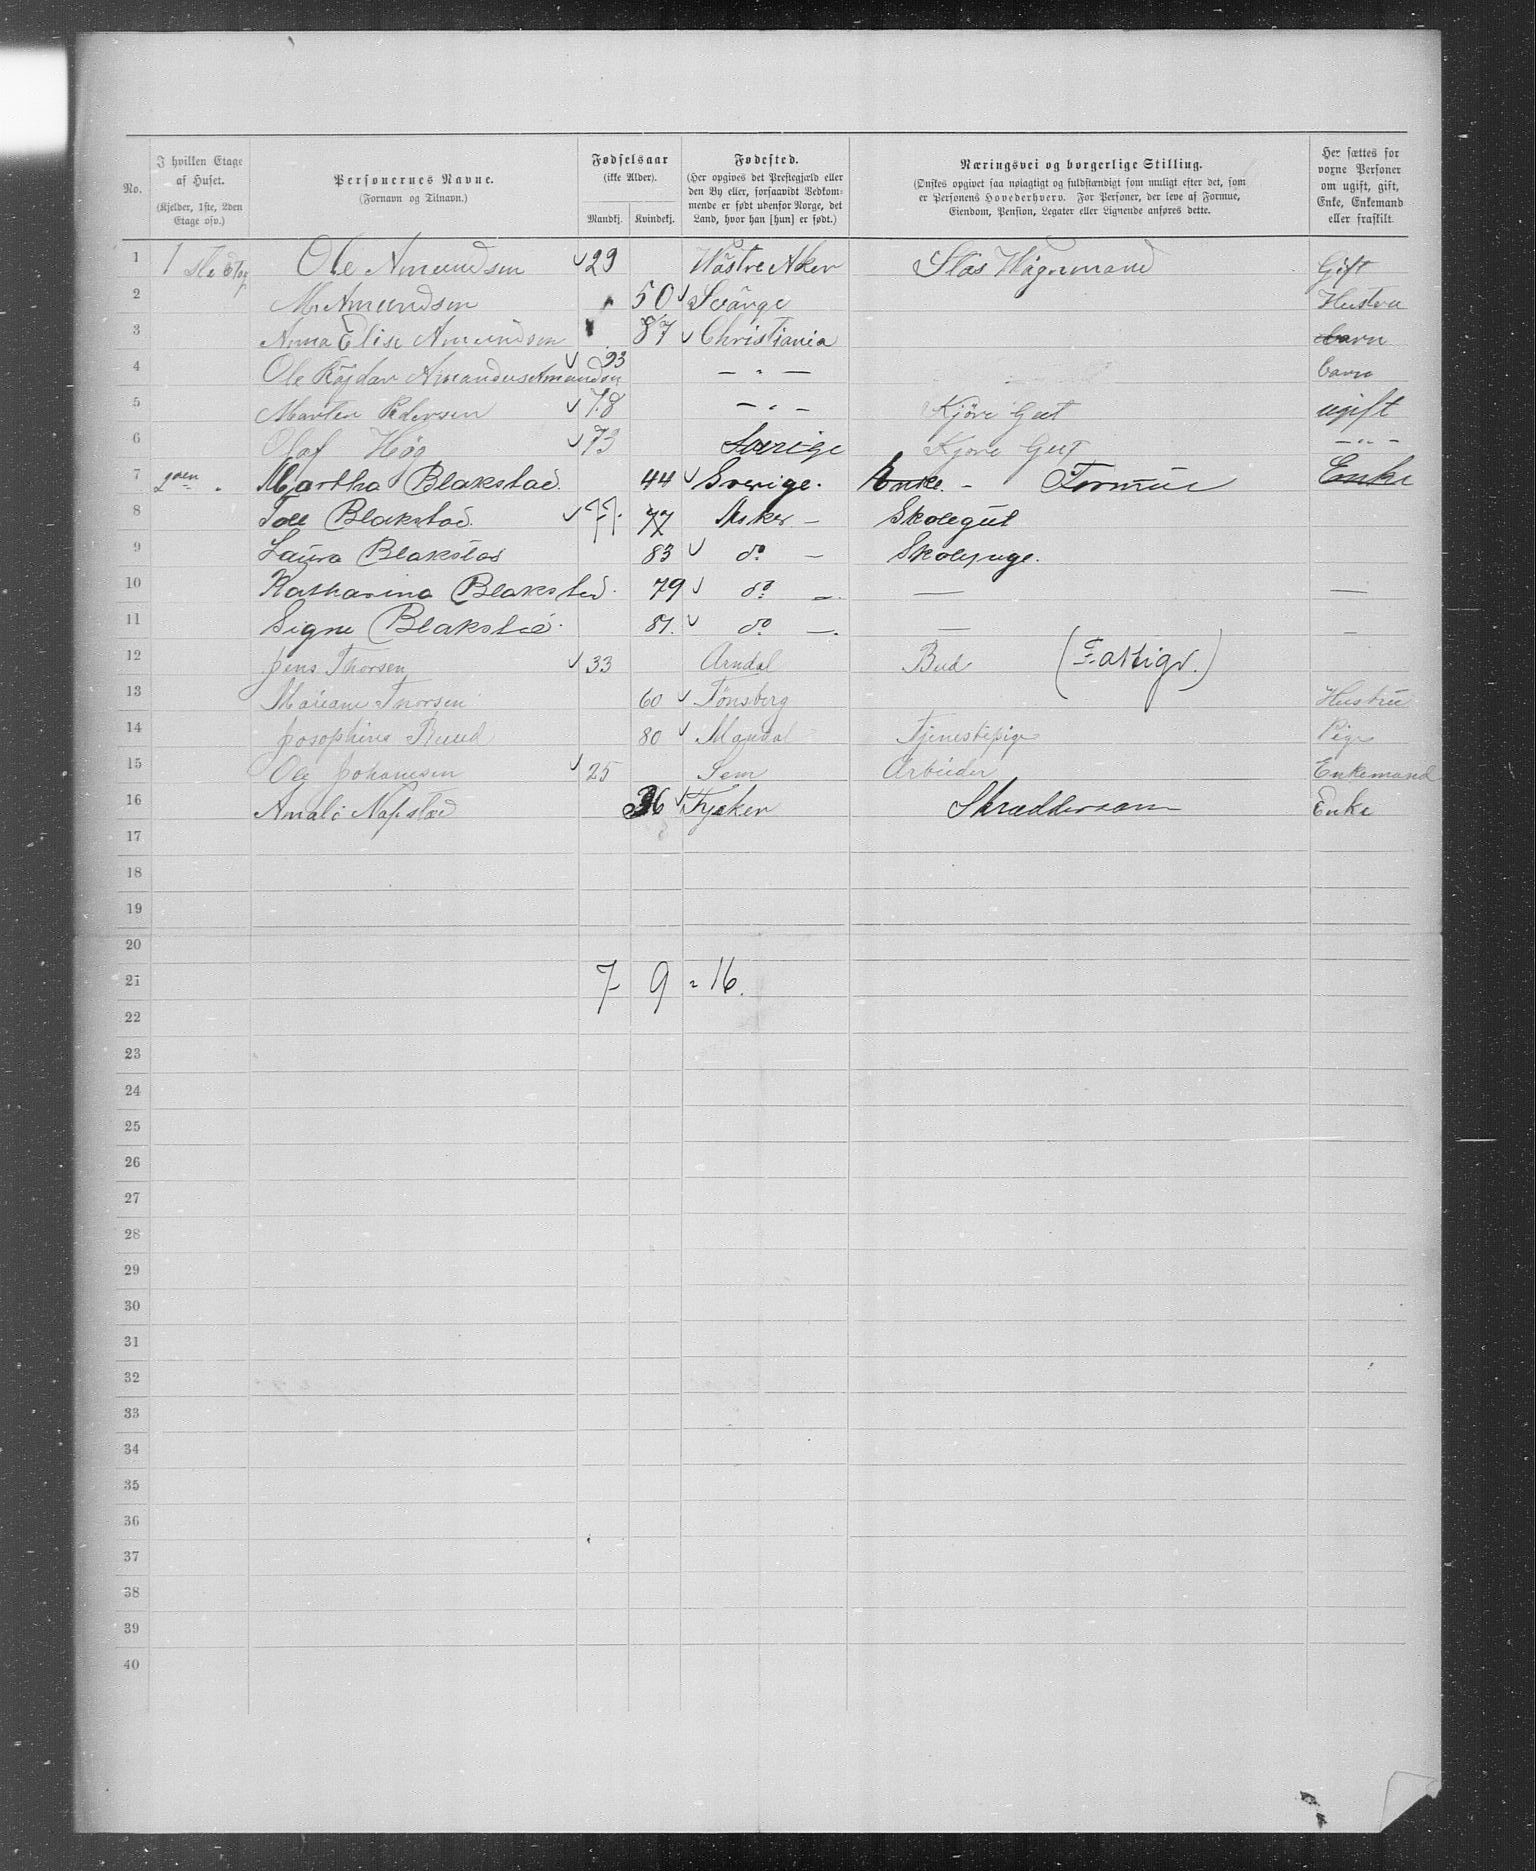 No. | I hvilken Etage af Huset. (Kjelder, 1ste, 2den Etage osv.) | Personernes Navne. (Fornavn og Tilnavn.) | Fødselsaar (ikke Alder). Mandkj. | Kvindekj. | Fødested. (Her opgives det Prestegjæld eller den By eller, forsaavidt Vedkommende er født udenfor Norge, det Land, hvor han [hun] er født.) | Næringsvei og borgerlige Stilling. (Ønskes opgivet saa nøiagtigt og fuldstændigt som muligt efter det, som er Personens Hovederhverv. For Personer, der leve af Formue, Eiendom, Pension, Legater eller Lignende anføres dette. | Her sættes for voxne Personer om ugift, gift, Enke, Enkemand eller fraskilt.
1 | 1 ste Etag | Ole Amundsen | 29 | | Wästre Aker | Slos Wognmand | Gift
2 | | M. Amundsen | | 50 | Svänge | | Hustru
3 | | Anna Elise Amundsen | | 87 | Christiania | | barn
4 | | Ole Amandus Amundsen | 93 | | — " — | | barn
5 | | Marten Pedersen | 78 | | — " — | Kjöre Gut | ugift
6 | | Olaf Hög | 73 | | Sverige | Kjöre Gut | — " —
7 | 2den " | Martha Blakstad. | | 44 | Sverige. | Enke. - Formue | Enke
8 | | Blakstad. | 77. | 77 | Asker — | Skolegut
9 | | Laura Blakstad | | 83 | do — | Skolepige.
10 | | Katharina Blakstad. | | 79 | do — | — | —
11 | | Signe Blakstad. | | 81. | do —. | — | —
12 | | Jens Thorsen | 33 | | Arndal | Bud (Fattigv.)
13 | | Mariane Thorsen | | 60 | Tönsberg | | Hustru
14 | | Josephine Ruud | | 80 | Mandal | Tjenestepige | Pige
15 | | Ole Johanesen | 25 | | Sem | Arbeider | Enkemand
16 | | Amali Napstad | | 36 | | | Enke
17
18
19
20
21 | | | 7 | 9 | = 16.
22
23
24
25
26
27
28
29
30
31
32
33
34
35
36
37
38
39
40